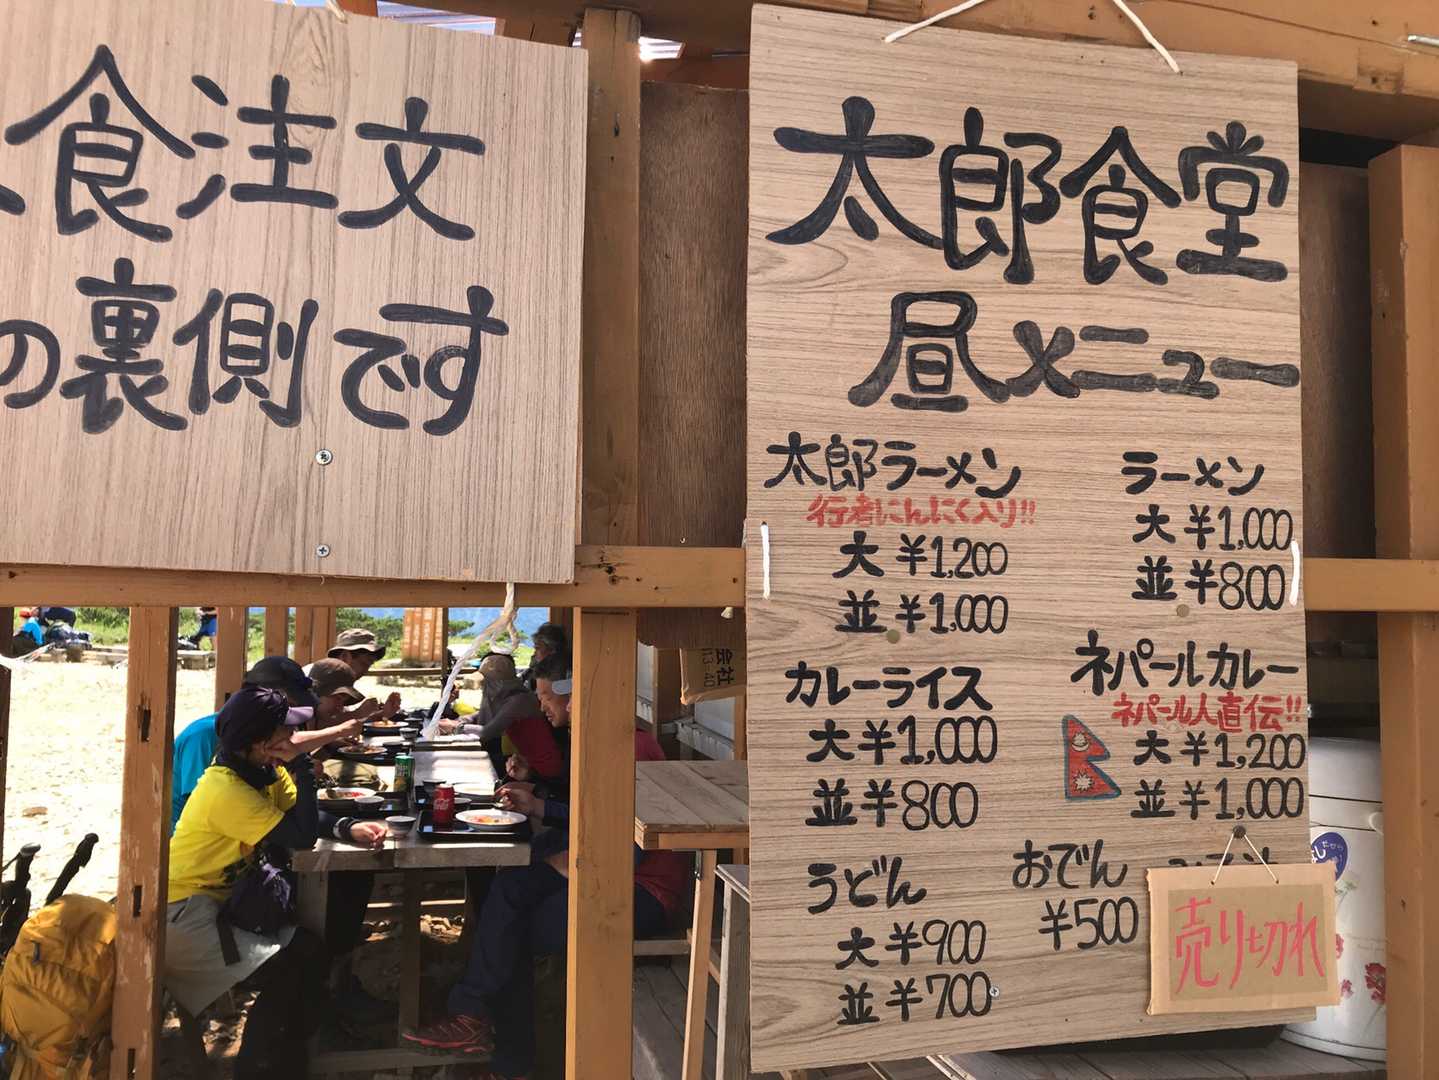 食注文
の裏側です
太郎食堂
昼メニュー
太郎ラーメン
行者にんにく入り!!
大 ¥1,200
並 ¥1,000
ラーメン
大 ¥1,000
並 ¥800
カレーライス
大 ¥1,000
並 ¥800
ネパールカレー
ネパール人直伝!!
大 ¥1,200
並 ¥1,000
うどん
大 ¥900
並 ¥700
おでん
¥500
売り切れ
会社